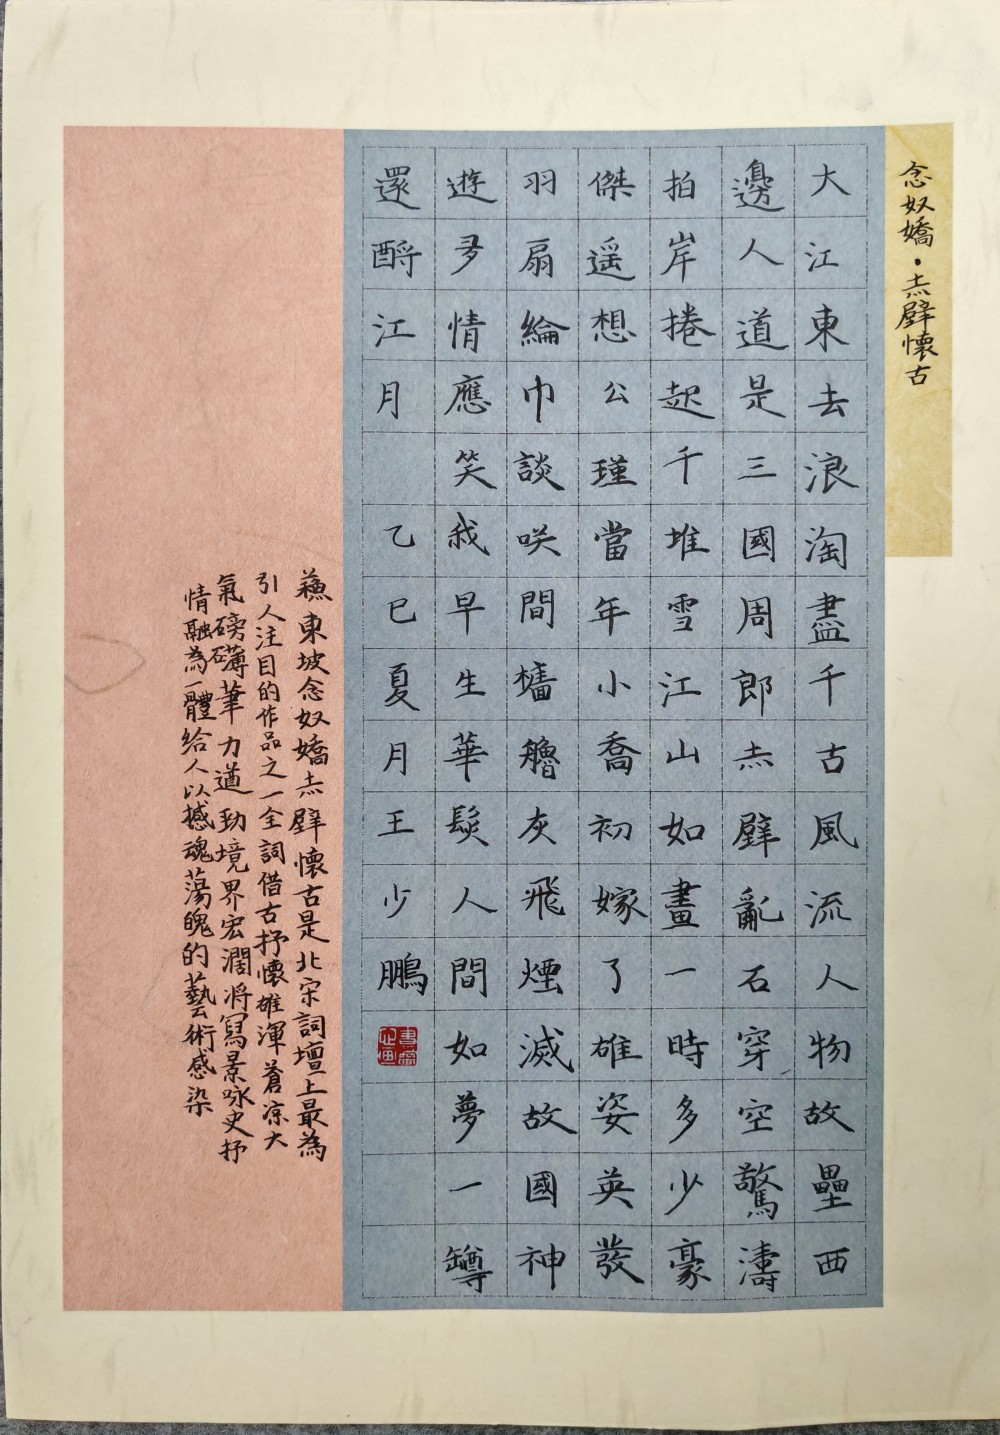 念奴嬌·赤壁懷古
大江東去浪淘盡千古風流人物故壘西
邊人道是三國周郎赤壁亂石穿空驚濤
拍岸捲起千堆雪江山如畫一時多少豪
傑遥想公瑾當年小喬初嫁了雄姿英發
羽扇綸巾談咲間檣艣灰飛煙滅故國神
遊多情應笑我早生華髮人間如夢一罇
還酹江月 乙巳夏月王少鵬
蘇東坡念奴嬌赤壁懷古是北宋詞壇上最為
引人注目的作品之一全詞借古抒懷雄渾蒼凉大
氣磅礴筆力遒勁境界宏濶將寫景咏史抒
情融為一體給人以撼魂蕩魄的藝術感染